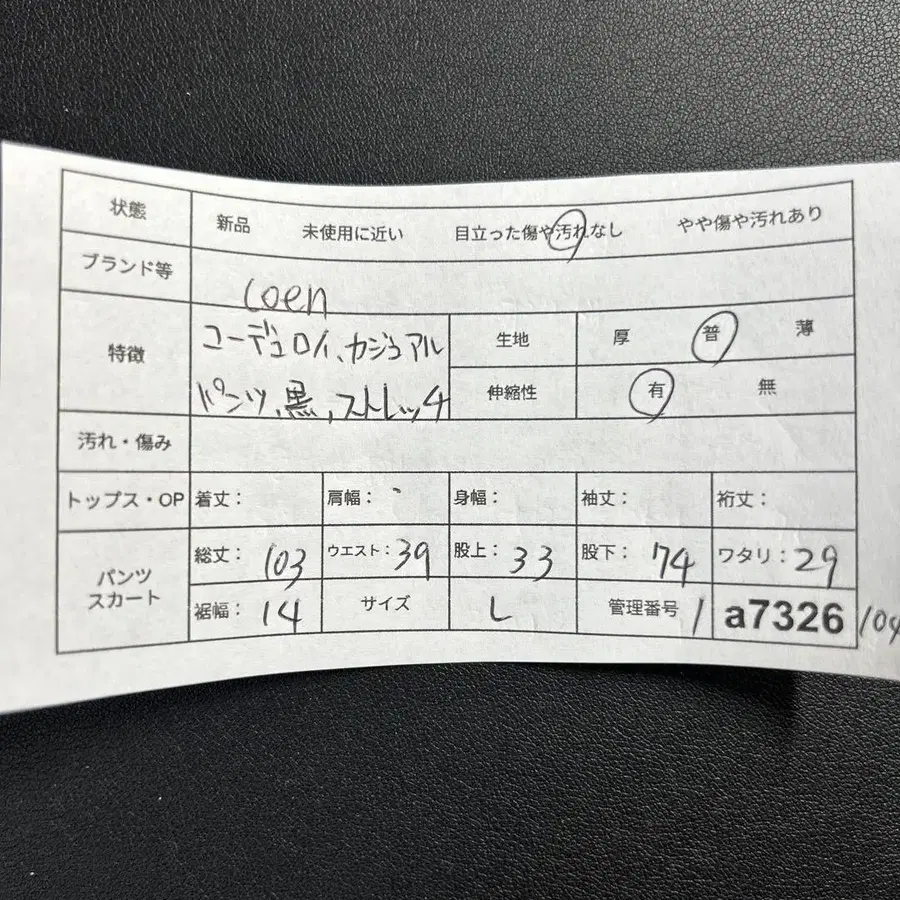 状態 新品 未使用に近い 目立った傷や汚れなし やや傷や汚れあり
ブランド等 coen
特徴 コーデュロイ、カジュアル 生地 厚 普 薄
パンツ、黒、ストレッチ 伸縮性 有 無
汚れ・傷み
トップス・OP 着丈: 肩幅: 身幅: 袖丈: 裄丈:
パンツ スカート 総丈: 103 ウエスト: 39 股上: 33 股下: 74 ワタリ: 29
裾幅: 14 サイズ L 管理番号 1 a7326 104